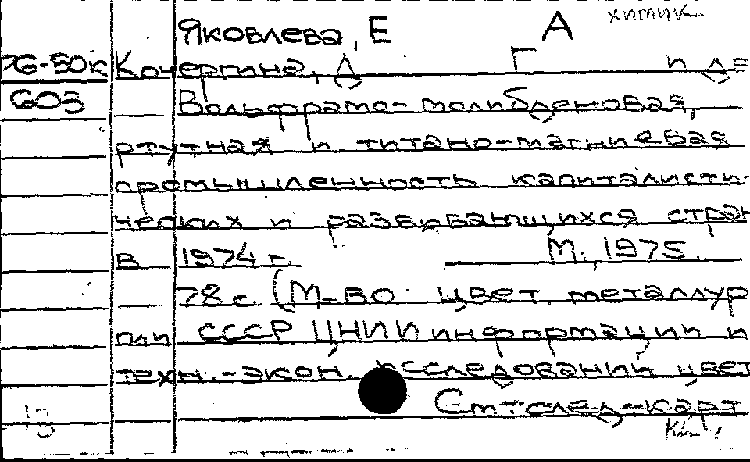 химик
Яковлева, Е А
76-50к Кочергина, Д Г и др
603 Вольфрамо-молибденовая,
ртутная и титано-магниевая
промышленность капиталисти-
ческих и развивающихся стран
в 1974 г. М., 1975.
78 с. (М-во цвет. металлур
гии СССР ЦНИИ информации и
техн.-экон. исследований цвет
См. след. карт